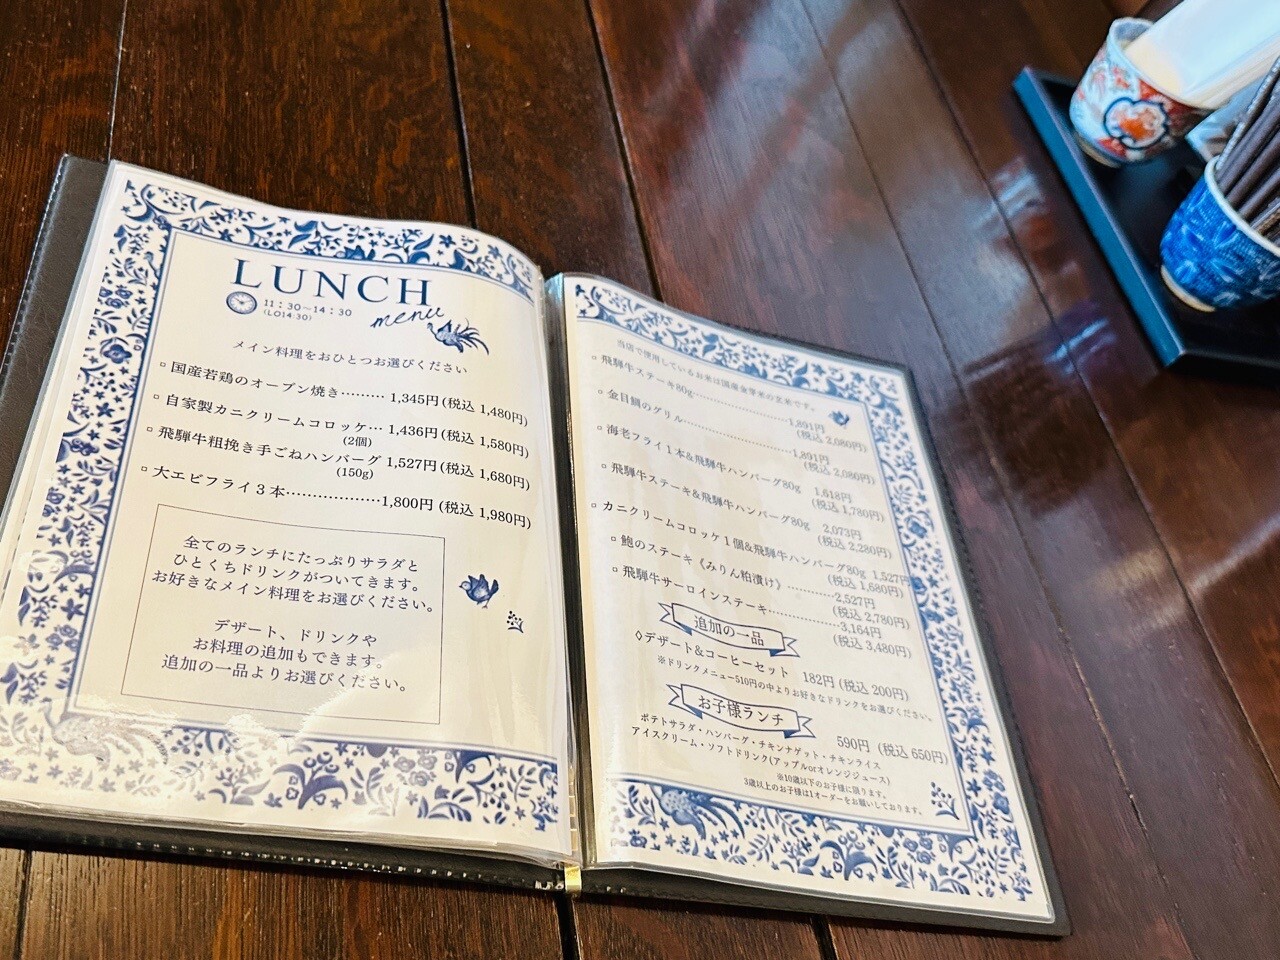 LUNCH
menu
11：30～14：30
(LO14:30)
メイン料理をおひとつお選びください
▫ 国産若鶏のオーブン焼き……… 1,345円 (税込 1,480円)
▫ 自家製カニクリームコロッケ… 1,436円 (税込 1,580円)
(2個)
▫ 飛騨牛粗挽き手ごねハンバーグ 1,527円 (税込 1,680円)
(150g)
▫ 大エビフライ３本………………1,800円 (税込 1,980円)
全てのランチにたっぷりサラダと
ひとくちドリンクがついてきます。
お好きなメイン料理をお選びください。
デザート、ドリンクや
お料理の追加もできます。
追加の一品よりお選びください。
当店で使用しているお米は国産金芽米の玄米です。
▫ 飛騨牛ステーキ80g……………………1,891円
(税込 2,080円)
▫ 金目鯛のグリル……………………1,891円
(税込 2,080円)
▫ 海老フライ１本&飛騨牛ハンバーグ80g 1,618円
(税込 1,780円)
▫ 飛騨牛ステーキ&飛騨牛ハンバーグ80g 2,073円
(税込 2,280円)
▫ カニクリームコロッケ１個&飛騨牛ハンバーグ80g 1,527円
(税込 1,680円)
▫ 鮑のステーキ《みりん粕漬け》…………2,527円
(税込 2,780円)
▫ 飛騨牛サーロインステーキ……………3,164円
(税込 3,480円)
追加の一品
◇デザート&コーヒーセット 182円 (税込 200円)
※ドリンクメニュー510円の中よりお好きなドリンクをお選びください。
お子様ランチ
590円 (税込 650円)
ポテトサラダ・ハンバーグ・チキンナゲット・チキンライス
アイスクリーム・ソフトドリンク(アップルorオレンジジュース)
※10歳以下のお子様に限ります。
3歳以上のお子様は1オーダーをお願いしております。